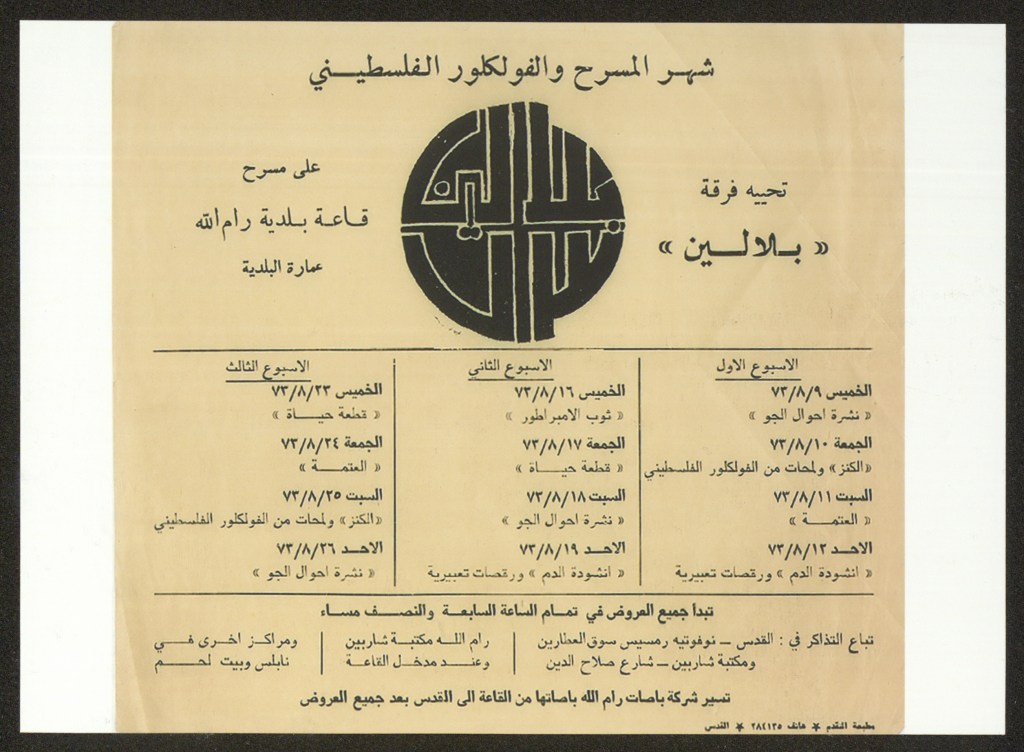 شهر المسرح والفولكلور الفلسطيني
تحييه فرقة
« بلالين »
على مسرح
قاعة بلدية رام الله
عمارة البلدية
بلالين
الاسبوع الاول
الخميس ٧٣/٨/٩
« نشرة احوال الجو »
الجمعة ٧٣/٨/١٠
«الكنز» ولمحات من الفولكلور الفلسطيني
السبت ٧٣/٨/١١
« العتمة »
الاحد ٧٣/٨/١٢
« انشودة الدم » ورقصات تعبيرية
الاسبوع الثاني
الخميس ٧٣/٨/١٦
« ثوب الامبراطور »
الجمعة ٧٣/٨/١٧
« قطعة حياة »
السبت ٧٣/٨/١٨
« نشرة احوال الجو »
الاحد ٧٣/٨/١٩
« انشودة الدم » ورقصات تعبيرية
الاسبوع الثالث
الخميس ٧٣/٨/٢٣
« قطعة حياة »
الجمعة ٧٣/٨/٢٤
« العتمة »
السبت ٧٣/٨/٢٥
«الكنز» ولمحات من الفولكلور الفلسطيني
الاحد ٧٣/٨/٢٦
« نشرة احوال الجو »
تبدأ جميع العروض في تمام الساعة السابعة والنصف مساء
تباع التذاكر في : القدس – نوفوتيه رمسيس سوق العطارين
ومكتبة شاربين – شارع صلاح الدين
رام الله مكتبة شاربين
وعند مدخل القاعة
ومراكز اخرى في
نابلس وبيت لحم
تسير شركة باصات رام الله باصاتها من القاعة الى القدس بعد جميع العروض
مطبعة التقدم ★ هاتف ٢٨٤١٣٥ ★ القدس